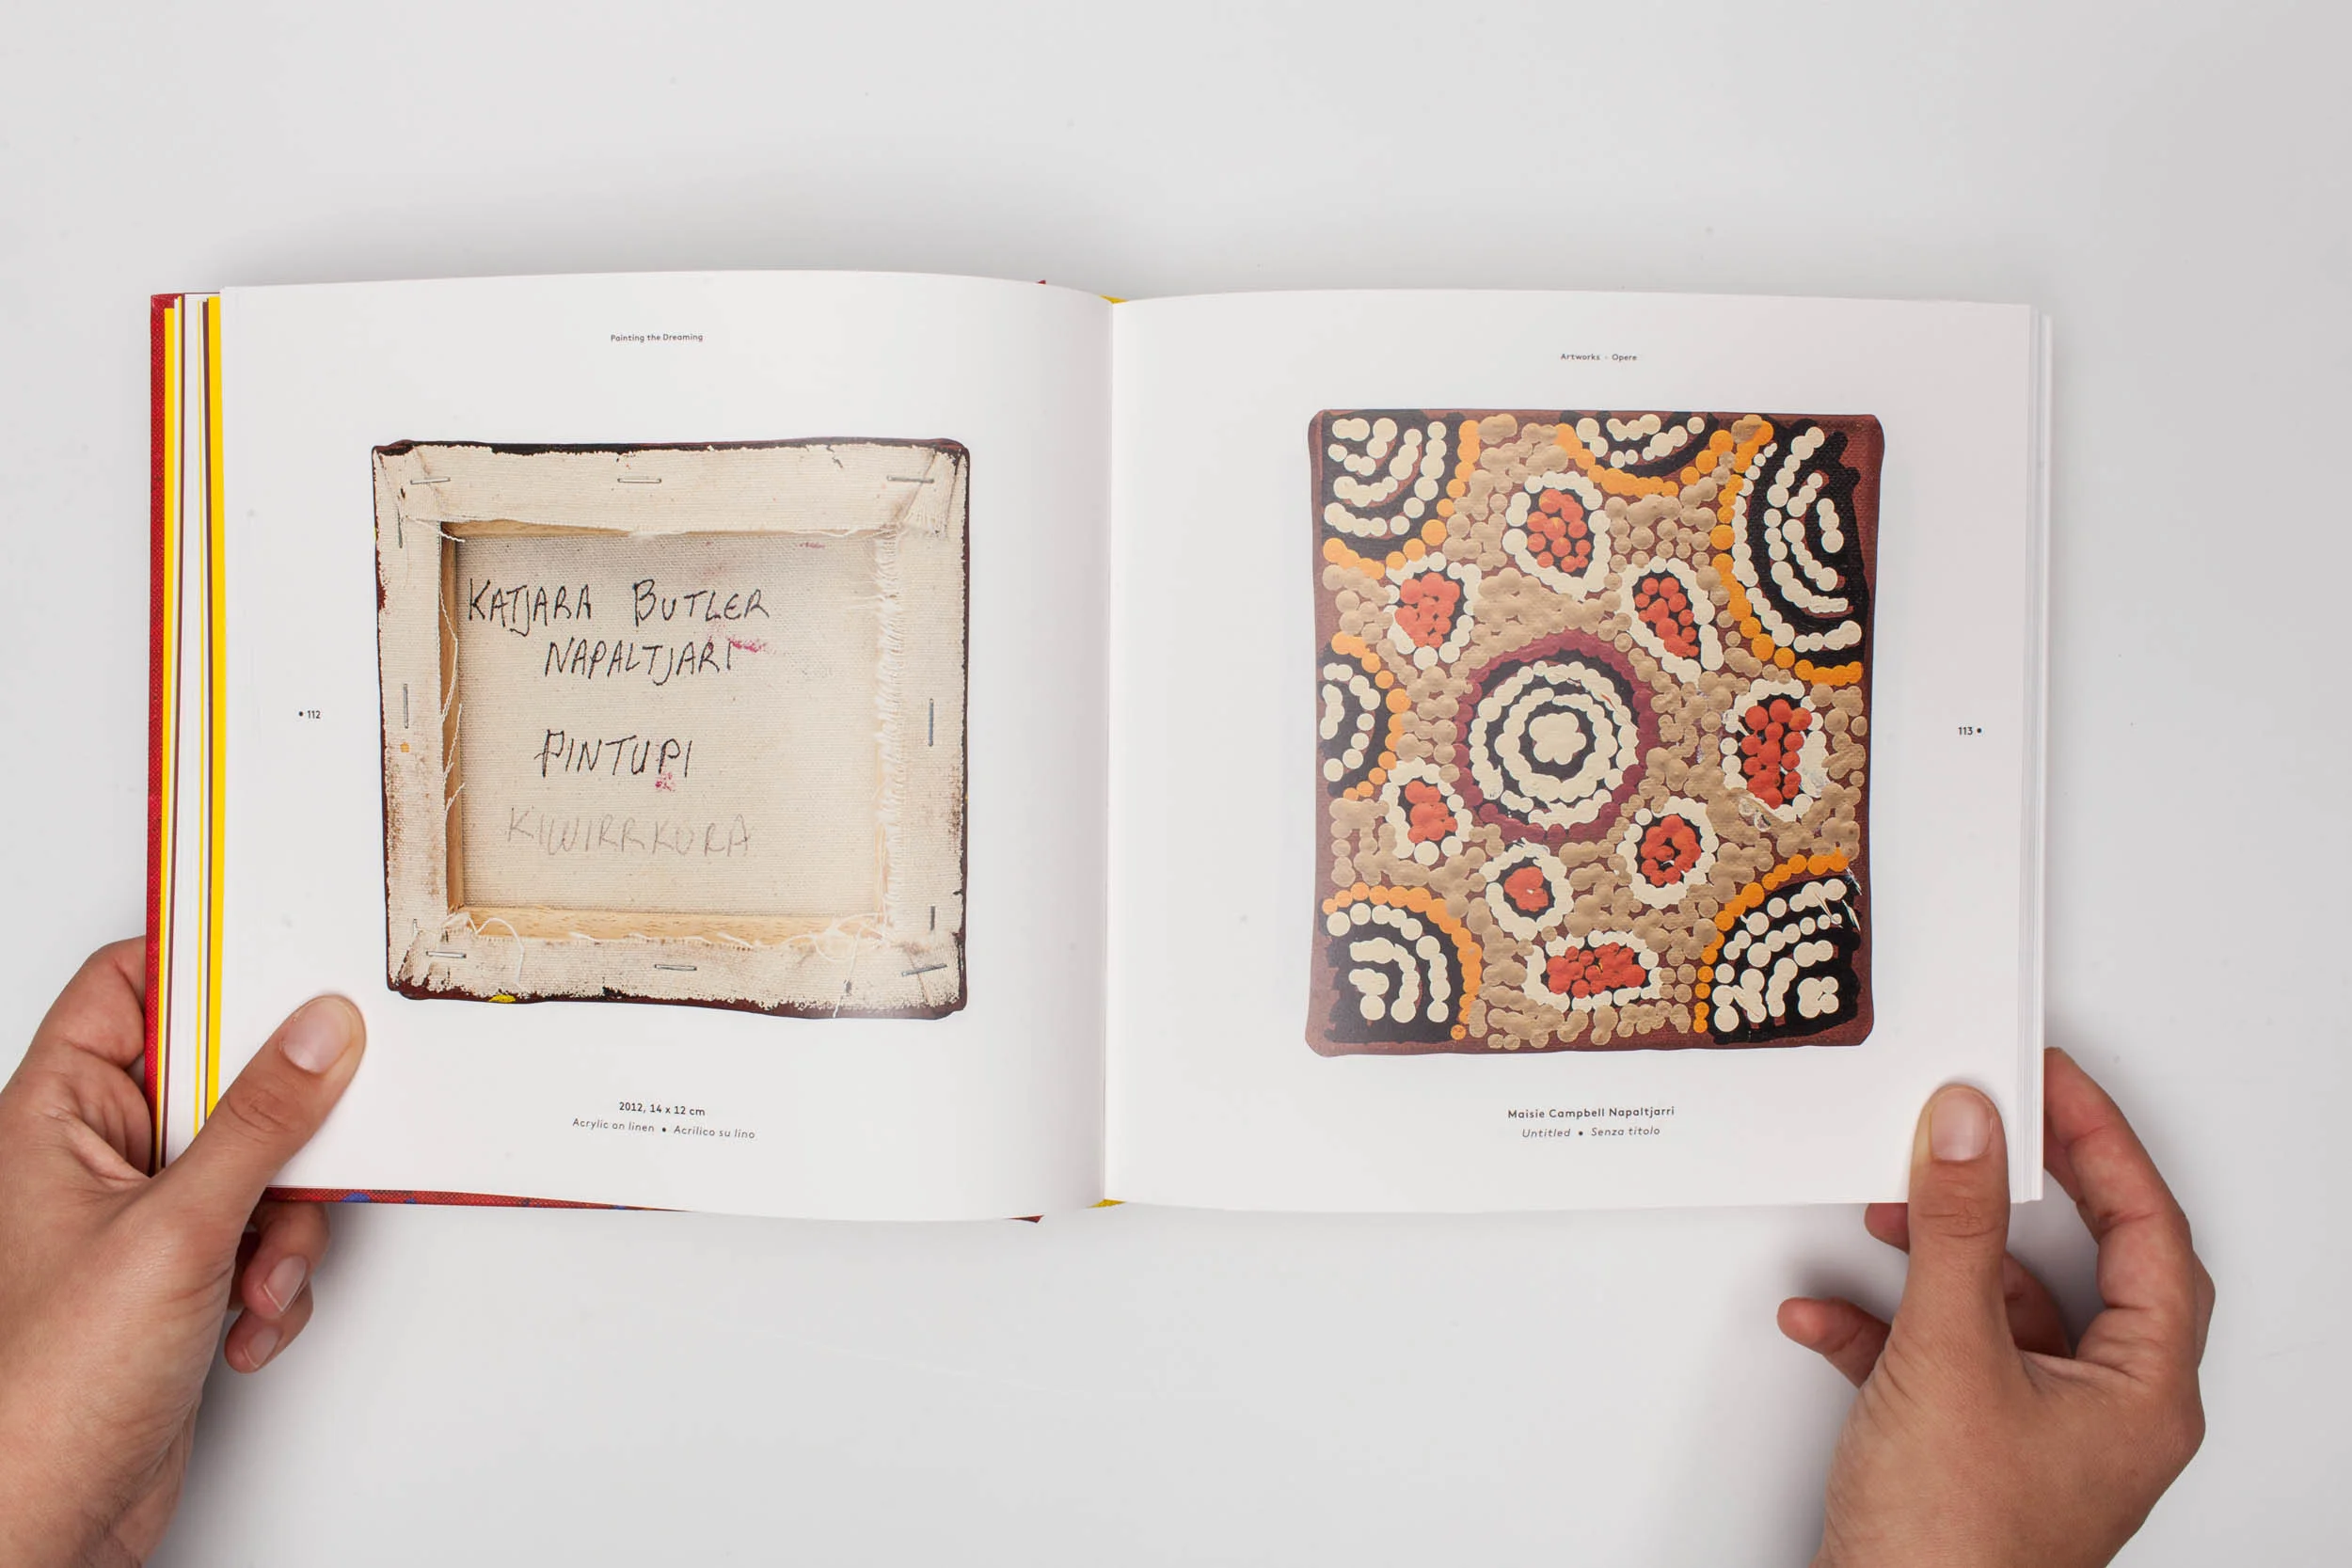 Painting the Dreaming
KATJARA BUTLER
NAPALTJARI
PINTUPI
KIWIRRKURA
• 112
2012, 14 x 12 cm
Acrylic on linen • Acrilico su lino
Artworks - Opere
113 •
Maisie Campbell Napaltjarri
Untitled • Senza titolo